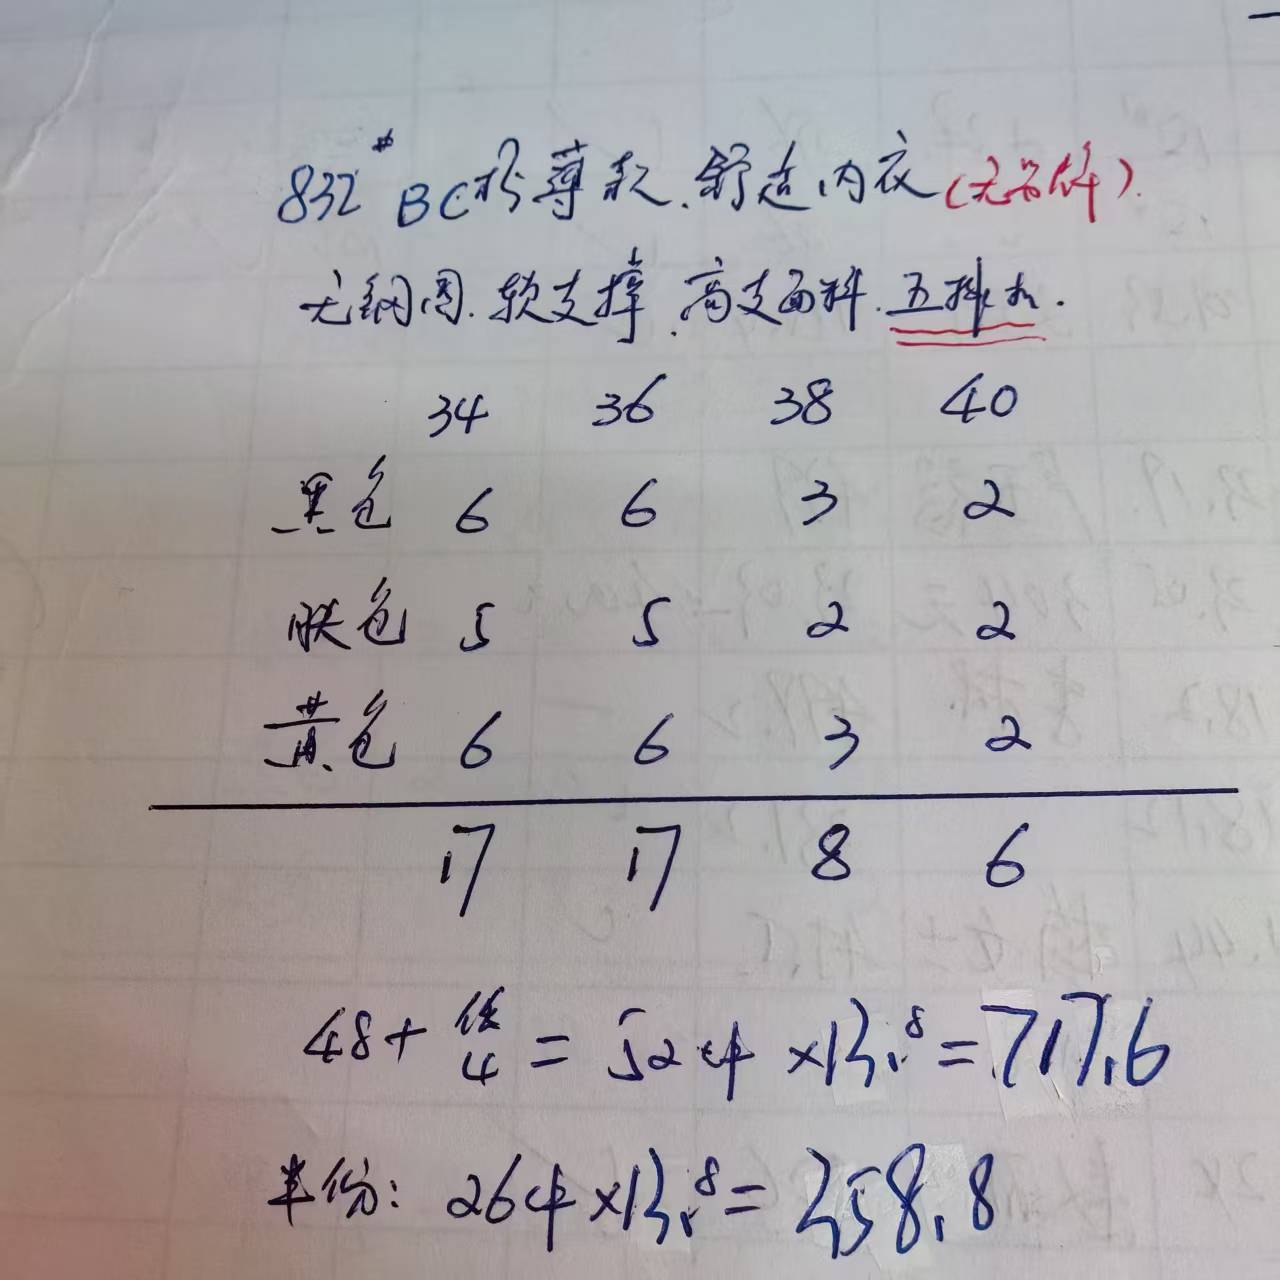 832# BC杯薄款.舒适内衣(无百件).
无钢圈.软支撑.高支面料.五排扣.
34 36 38 40
黑色 6 6 3 2
肤色 5 5 2 2
黄色 6 6 3 2
17 17 8 6
48+ 4 = 52件 ×13.8=717.6
半份: 26件×13.8=358.8